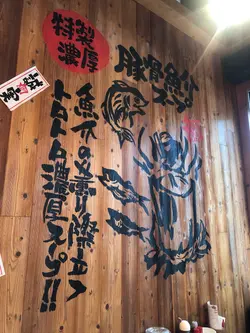 特製
濃厚
豚骨魚介
スープ
魚介の香り際立つ
トロトロ濃厚スープ!!